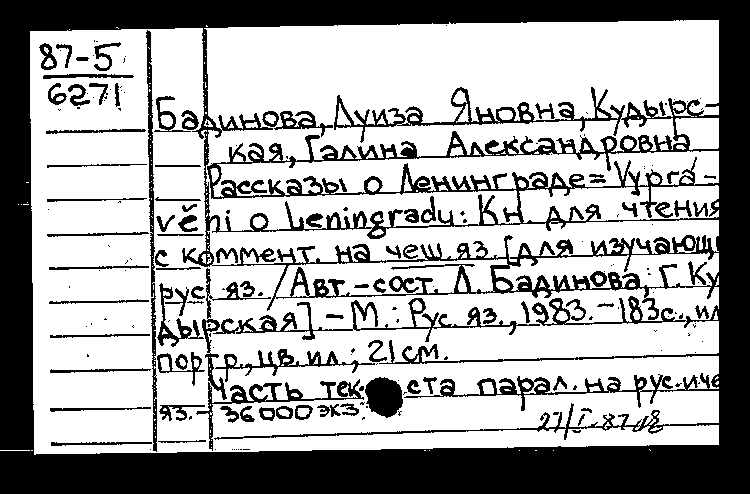 87-5
6271
Бадинова, Луиза Яновна, Кудырс-
кая, Галина Александровна
Рассказы о Ленинграде=Vyprá-
věni o Leningradu: Кн. для чтения
с коммент. на чеш. яз. [для изучающи
рус яз. / Авт.-сост. Л. Бадинова, Г. Ку
дырская]. - М.: Рус. яз., 1983. - 183 с., ил
портр., цв. ил.; 21 см.
Часть тек ста парал. на рус. и че
яз. - 36000 экз.
27/I-87